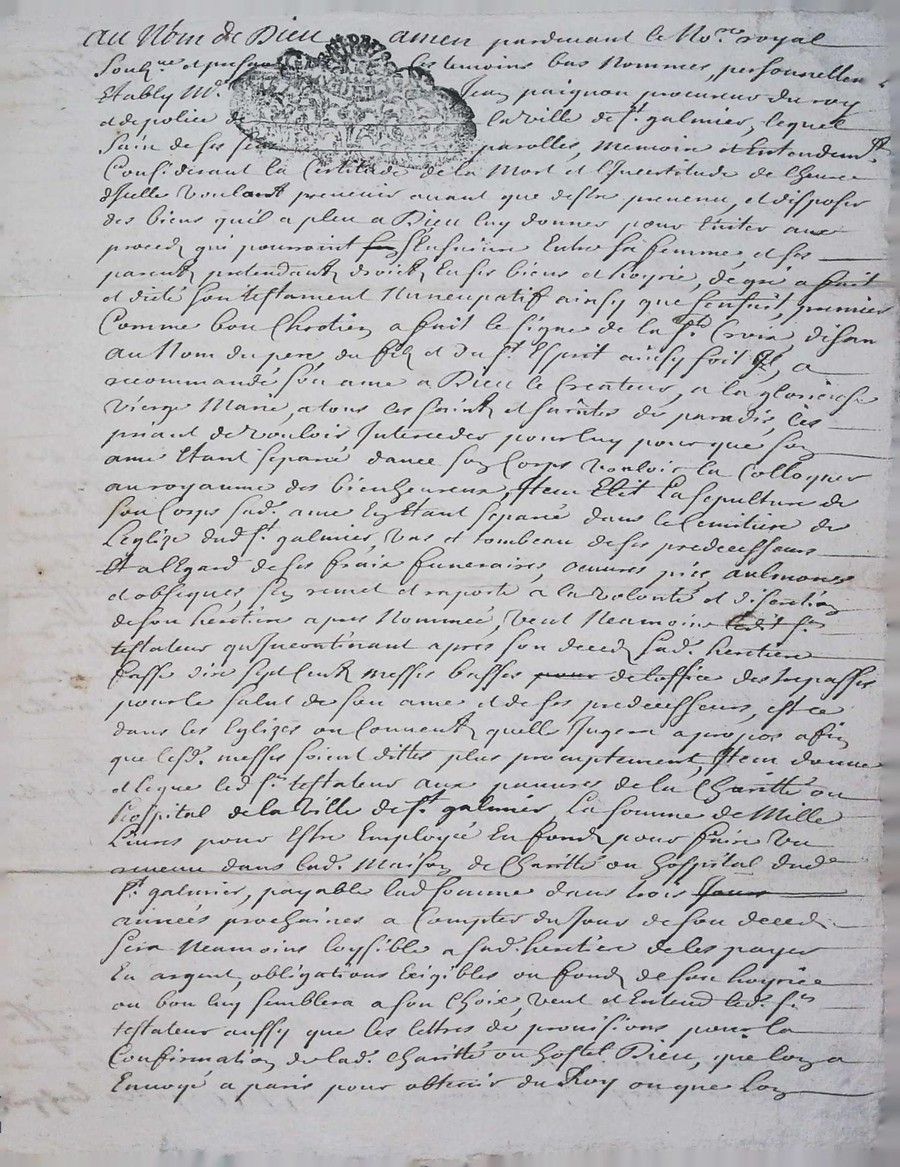 au Nom de Dieu amen pardevant le No.re royal
Soub.né et present les temoins bas Nommes, personnellem.
Etably M.e Jean paignon procureur du roy
et de police de la ville de S.t galmier, lequel
Sain de ses sens parolles, memoire et Entendem.t
Considerant la Certitude de la Mort et l'Incertitude de l'heure
d'Icelle voulant prevenir avant que d'estre prevenu, et disposer
des biens qu'il a pleu a Dieu luy donner pour Eviter aux
proces qui pourroint s'Ensuivre Entre sa femme, et ses
parents pretendants droicts En ses biens et hoyrie, de gré a fait
et dicté son testament Nuncupatif ainsy que s'ensuit, premier
Comme bon Chretien a fait le signe de la S.te Croix disan
au Nom du pere du fils et du S.t Esprit ainsy soit Il, a
recommandé son ame a Dieu le Createur, a la glorieuse
Vierge Marie, a tous les saints et saintes de paradis, les
priant de vouloir Interceder pour luy pour que son
ame Etant separée d'avec son Corps vouloir la Colloquer
au royaume des bienheureux, Item Elit La sepulture de
son Corps sad. ame En Etant separée dans le Cimitiere de
L'eglize dud S.t galmier, vas et tombeau de ses predecesseurs
Et a l'Egard de ses fraix funeraires, oeuvres pies, aulmones
et obseques, s'en remet et raporte a la volonté et discretion
de son heritiere apres Nommée, veut Neamoins ledit S.r
testateur qu'Incontinant apres son deceds sad. heritiere
fasse dire sept Cents messes basses pour de l'office des trepasses
pour le salut de son ame et de ses predecesseurs, et ce
dans les Eglizes ou Couvents qu'elle Jugera apropos afin
que lesd. messes soient dittes plus promptement, Item donne
et legue led S.r testateur aux pauvres de la Charitté ou
hospital de la ville de S.t galmier, La somme de Mille
Livres pour Estre Employée En fonds pour faire un
revenu dans lad. Maison de Charitté ou hospital dud
S.t galmier, payable lad somme dans trois Jours
années prochaines a Compter du Jour de son deceds
sera Neamoins loysible a sad. heritiere de les payer
En argent, obligations Exigibles ou fonds de son hoyrie
ou bon luy semblera a son Choix, veut et Entend led. S.r
testateur aussy que les lettres de provisions pour la
Confirmation de lad. Charitté ou hostel Dieu, que l'on a
Envoyé a paris pour obtenir du Roy ou que l'on